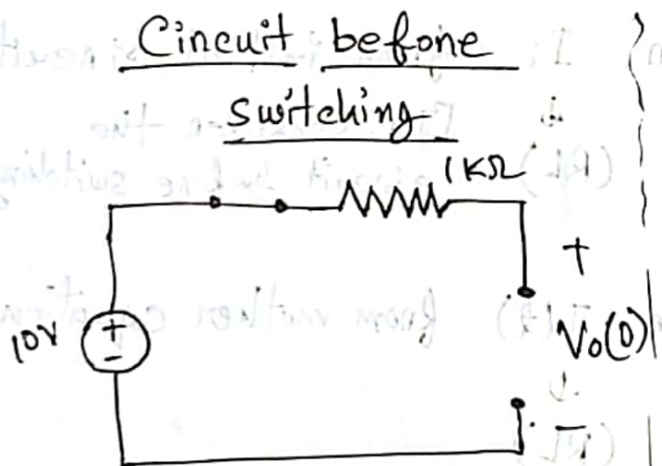 Circuit before
switching
1KΩ
10V
+
-
+
Vo(0)
-